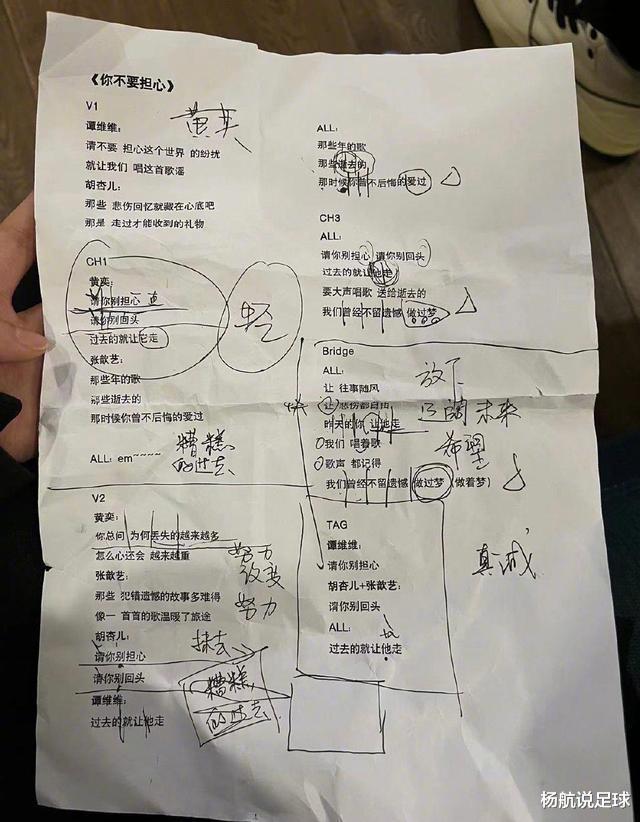 《你不要担心》
V1
谭维维：
黄奕
请不要 担心这个世界 的纷扰
就让我们 唱这首歌谣
胡杏儿：
那些 悲伤回忆就藏在心底吧
那是 走过才能收到的礼物
CH1
黄奕：
请你别担心
请你别回头
过去的就让它走
轻
张歆艺：
那些年的歌
那些逝去的
那时候你曾不后悔的爱过
ALL: em~~~~
糟糕
的过去
V2
黄奕：
你总问 为何丢失的越来越多
怎么心还会 越来越重
努力
改变
张歆艺：
那些 犯错遗憾的故事多难得
努力
像一 首首的歌温暖了旅途
胡杏儿：
抹去
请你别担心
请你别回头
糟糕
的过去
谭维维：
过去的就让他走
ALL:
那些年的歌
那些逝去的
那时候你曾不后悔的爱过
CH3
ALL:
请你别担心 请你别回头
过去的就让他走
要大声唱歌 送给逝去的
我们曾经不留遗憾 做过梦
Bridge
ALL:
让 往事随风
放下
让 悲伤都自由
迈向未来
昨天的你 让他走
我们 唱着歌
希望
歌声 都记得
我们曾经不留遗憾 做过梦（做着梦）
TAG
谭维维：
请你别担心
真诚
胡杏儿+张歆艺：
请你别回头
ALL:
过去的就让他走
杨航说足球